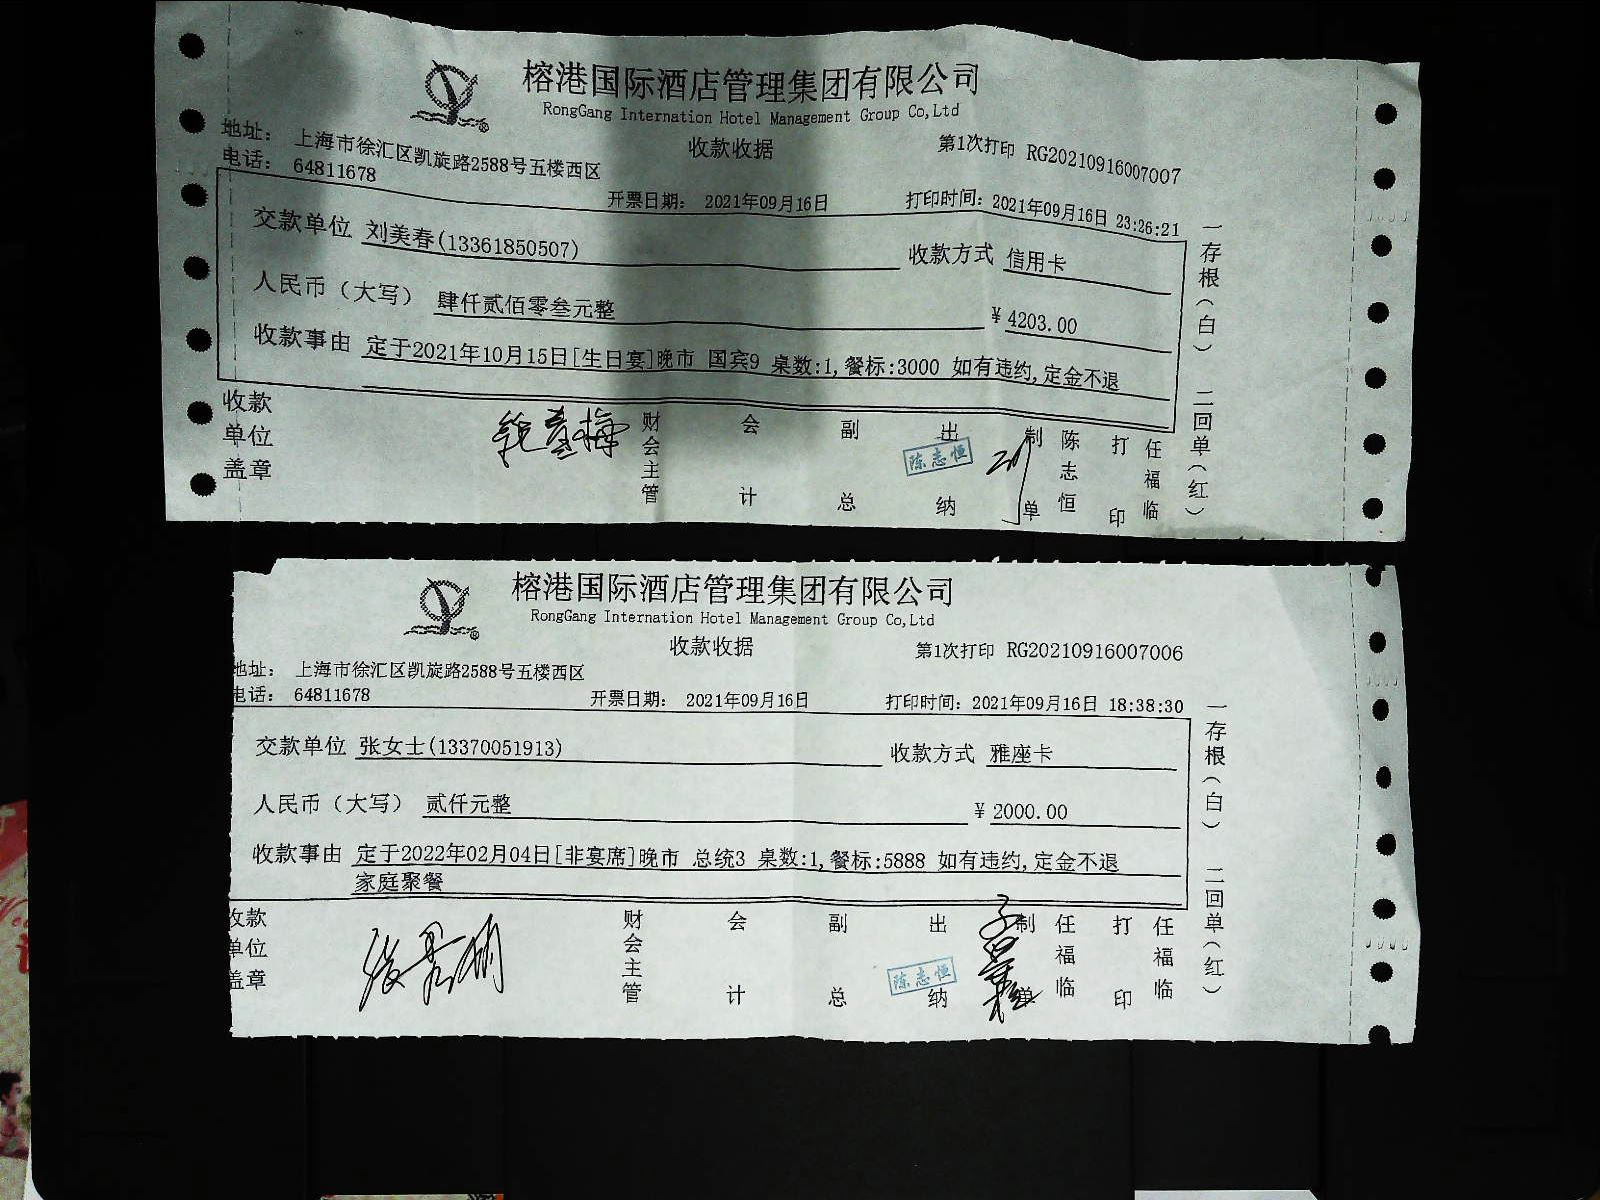 榕港国际酒店管理集团有限公司
RongGang Internation Hotel Management Group Co,Ltd
收款收据
第1次打印 RG20210916007007
地址： 上海市徐汇区凯旋路2588号五楼西区
电话： 64811678
开票日期： 2021年09月16日
打印时间：2021年09月16日 23:26:21
交款单位 刘美春(13361850507)
收款方式 信用卡
人民币（大写） 肆仟贰佰零叁元整
¥ 4203.00
收款事由 定于2021年10月15日[生日宴]晚市 国宾9 桌数:1,餐标:3000 如有违约,定金不退
收款单位盖章
财会主管
会计
副总
出纳
陈志恒
制单
陈志恒
打印
任福临
一存根（白） 二回单（红）
榕港国际酒店管理集团有限公司
RongGang Internation Hotel Management Group Co,Ltd
收款收据
第1次打印 RG20210916007006
地址： 上海市徐汇区凯旋路2588号五楼西区
电话： 64811678
开票日期： 2021年09月16日
打印时间：2021年09月16日 18:38:30
交款单位 张女士(13370051913)
收款方式 雅座卡
人民币（大写） 贰仟元整
¥ 2000.00
收款事由 定于2022年02月04日[非宴席]晚市 总统3 桌数:1,餐标:5888 如有违约,定金不退
家庭聚餐
收款单位盖章
财会主管
会计
副总
出纳
陈志恒
制单
任福临
打印
任福临
一存根（白） 二回单（红）